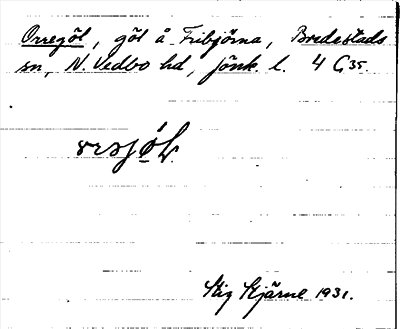 Orregöl, göl å Fribjörna, Bredestads
sn, N. Vedbo hd, Jönk. l. 4 C35.
Stig Stjärne 1931.